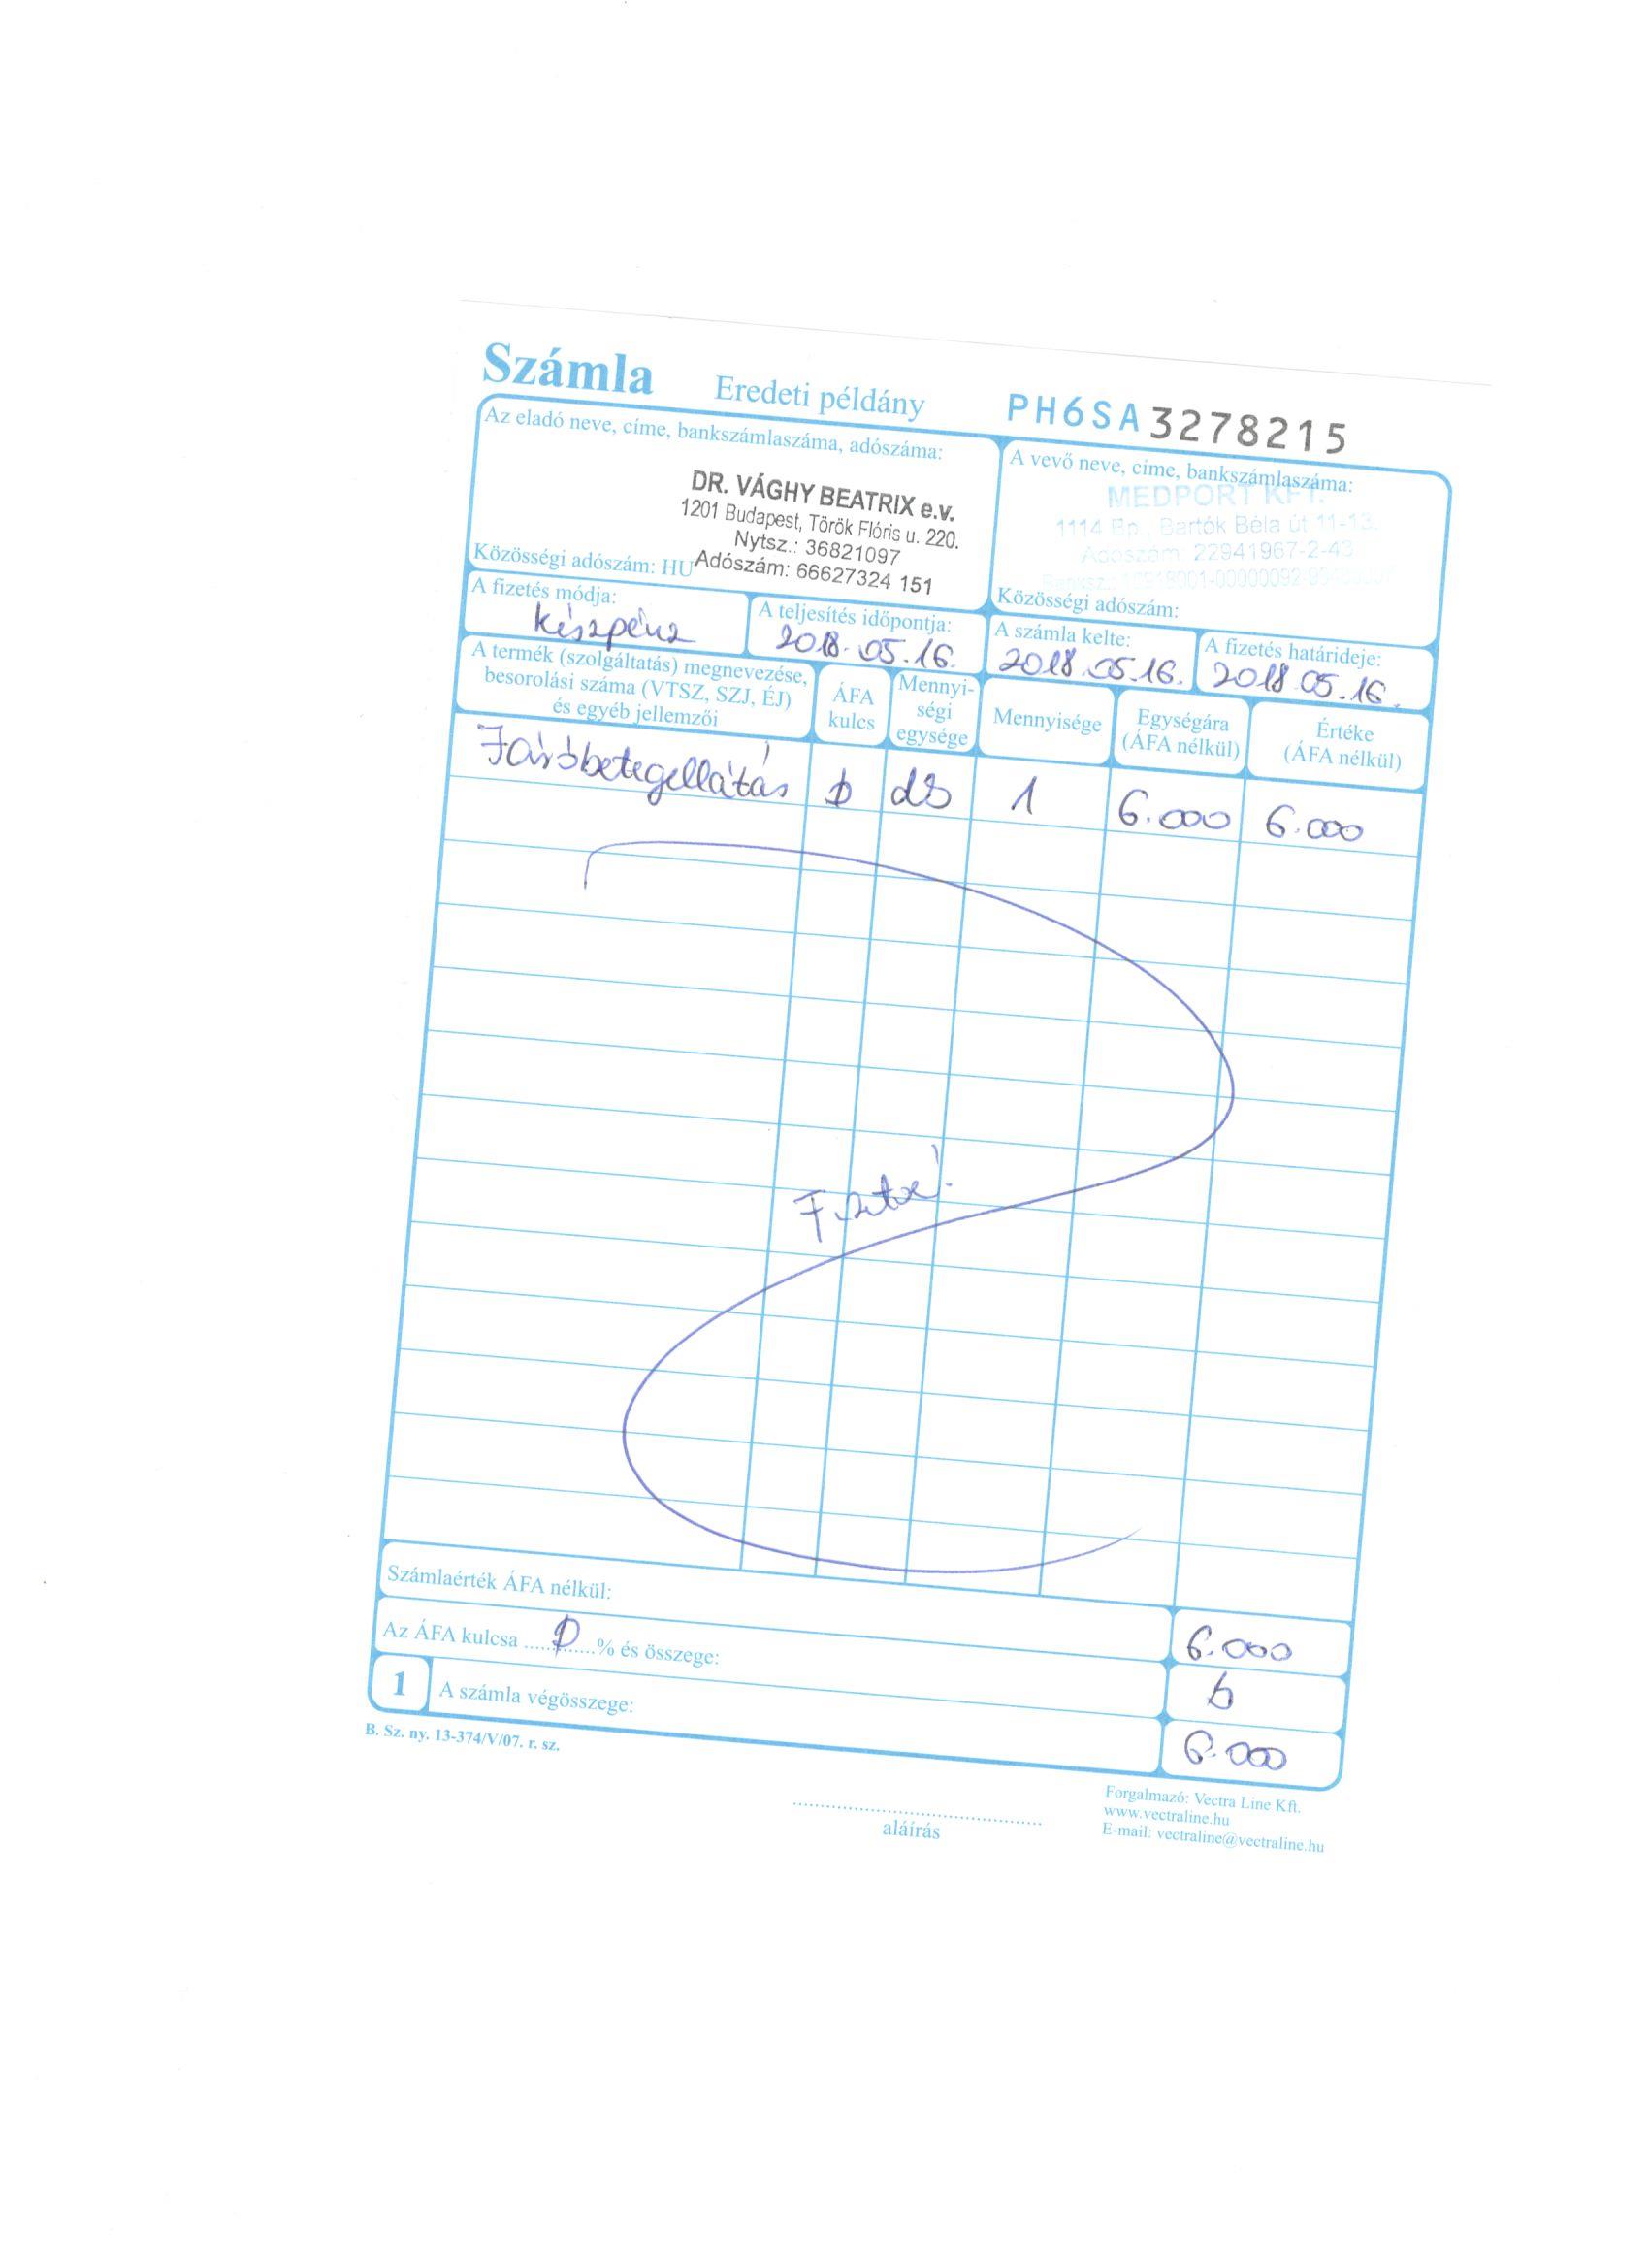 Számla Eredeti példány PH6SA3278215
Az eladó neve, címe, bankszámlaszáma, adószáma:
DR. VÁGHY BEATRIX e.v.
1201 Budapest, Török Flóris u. 220.
Nytsz.: 36821097
Közösségi adószám: HU Adószám: 66627324 151
A vevő neve, címe, bankszámlaszáma:
MEDPORT KFT.
1114 Bp., Bartók Béla út 11-13.
Adószám: 22941967-2-43
Közösségi adószám:
A fizetés módja:
készpénz
A teljesítés időpontja:
2018.05.16.
A számla kelte:
2018.05.16.
A fizetés határideje:
2018.05.16.
A termék (szolgáltatás) megnevezése,
besorolási száma (VTSZ, SZJ, ÉJ)
és egyéb jellemzői
ÁFA
kulcs
Mennyi-
ségi
egysége
Mennyisége
Egységára
(ÁFA nélkül)
Értéke
(ÁFA nélkül)
Járóbetegellátás 0 db 1 6.000 6.000
Fizetve!
Számlaérték ÁFA nélkül: 6.000
Az ÁFA kulcsa ....0....% és összege: 0
1 A számla végösszege: 6.000
B. Sz. ny. 13-374/V/07. r. sz.
aláírás
Forgalmazó: Vectra Line Kft.
www.vectraline.hu
E-mail: vectraline@vectraline.hu